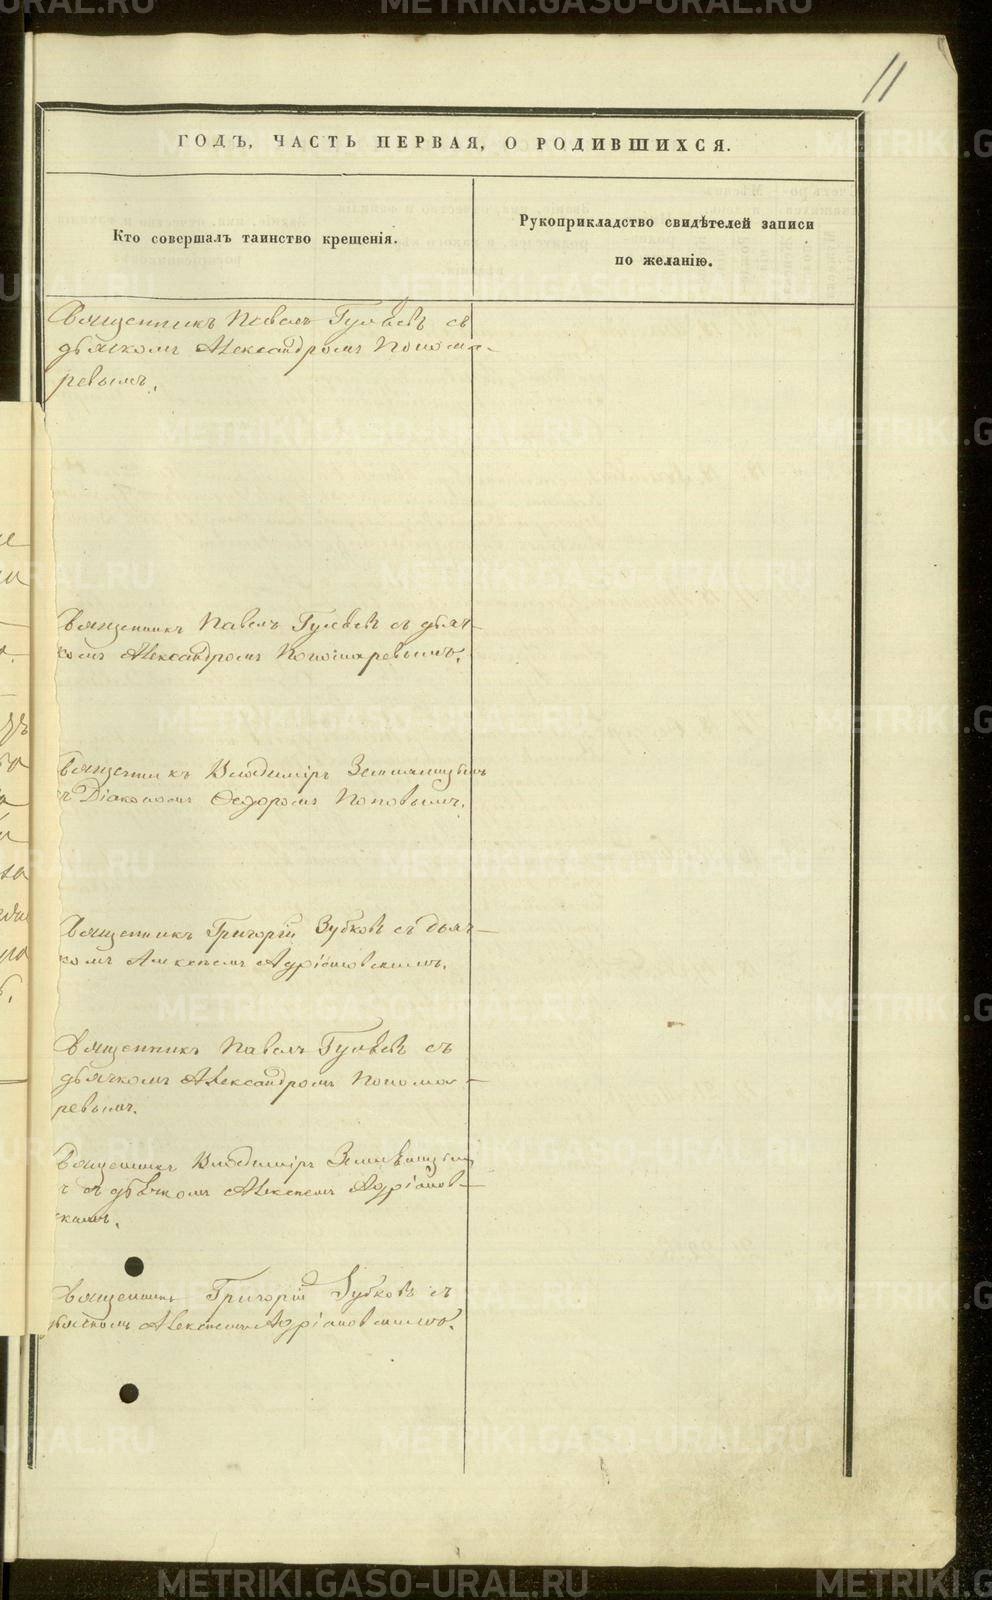 11
ГОДЪ, ЧАСТЬ ПЕРВАЯ, О РОДИВШИХСЯ.
Кто совершалъ таинство крещенія.
Рукоприкладство свидѣтелей записи
по желанію.
Священникъ Павелъ Гуляевъ съ
дьячкомъ Александромъ Понома-
ревымъ.
Священникъ Павелъ Гуляевъ съ дьяч-
комъ Александромъ Пономаревымъ.
Священникъ Владиміръ
съ Діакономъ Ѳедоромъ Поповымъ.
Священникъ Григорій Зубковъ съ дьяч-
комъ Алексѣемъ Адріановскимъ.
Священникъ Павелъ Гуляевъ съ
дьячкомъ Александромъ Пономо-
ревымъ.
Священникъ Владиміръ
съ дьячкомъ Алексѣемъ Адріанов-
скимъ.
Священникъ Григорій Зубковъ съ
дьячкомъ Алексѣемъ Адріановскимъ.
METRIKI.GASO-URAL.RU